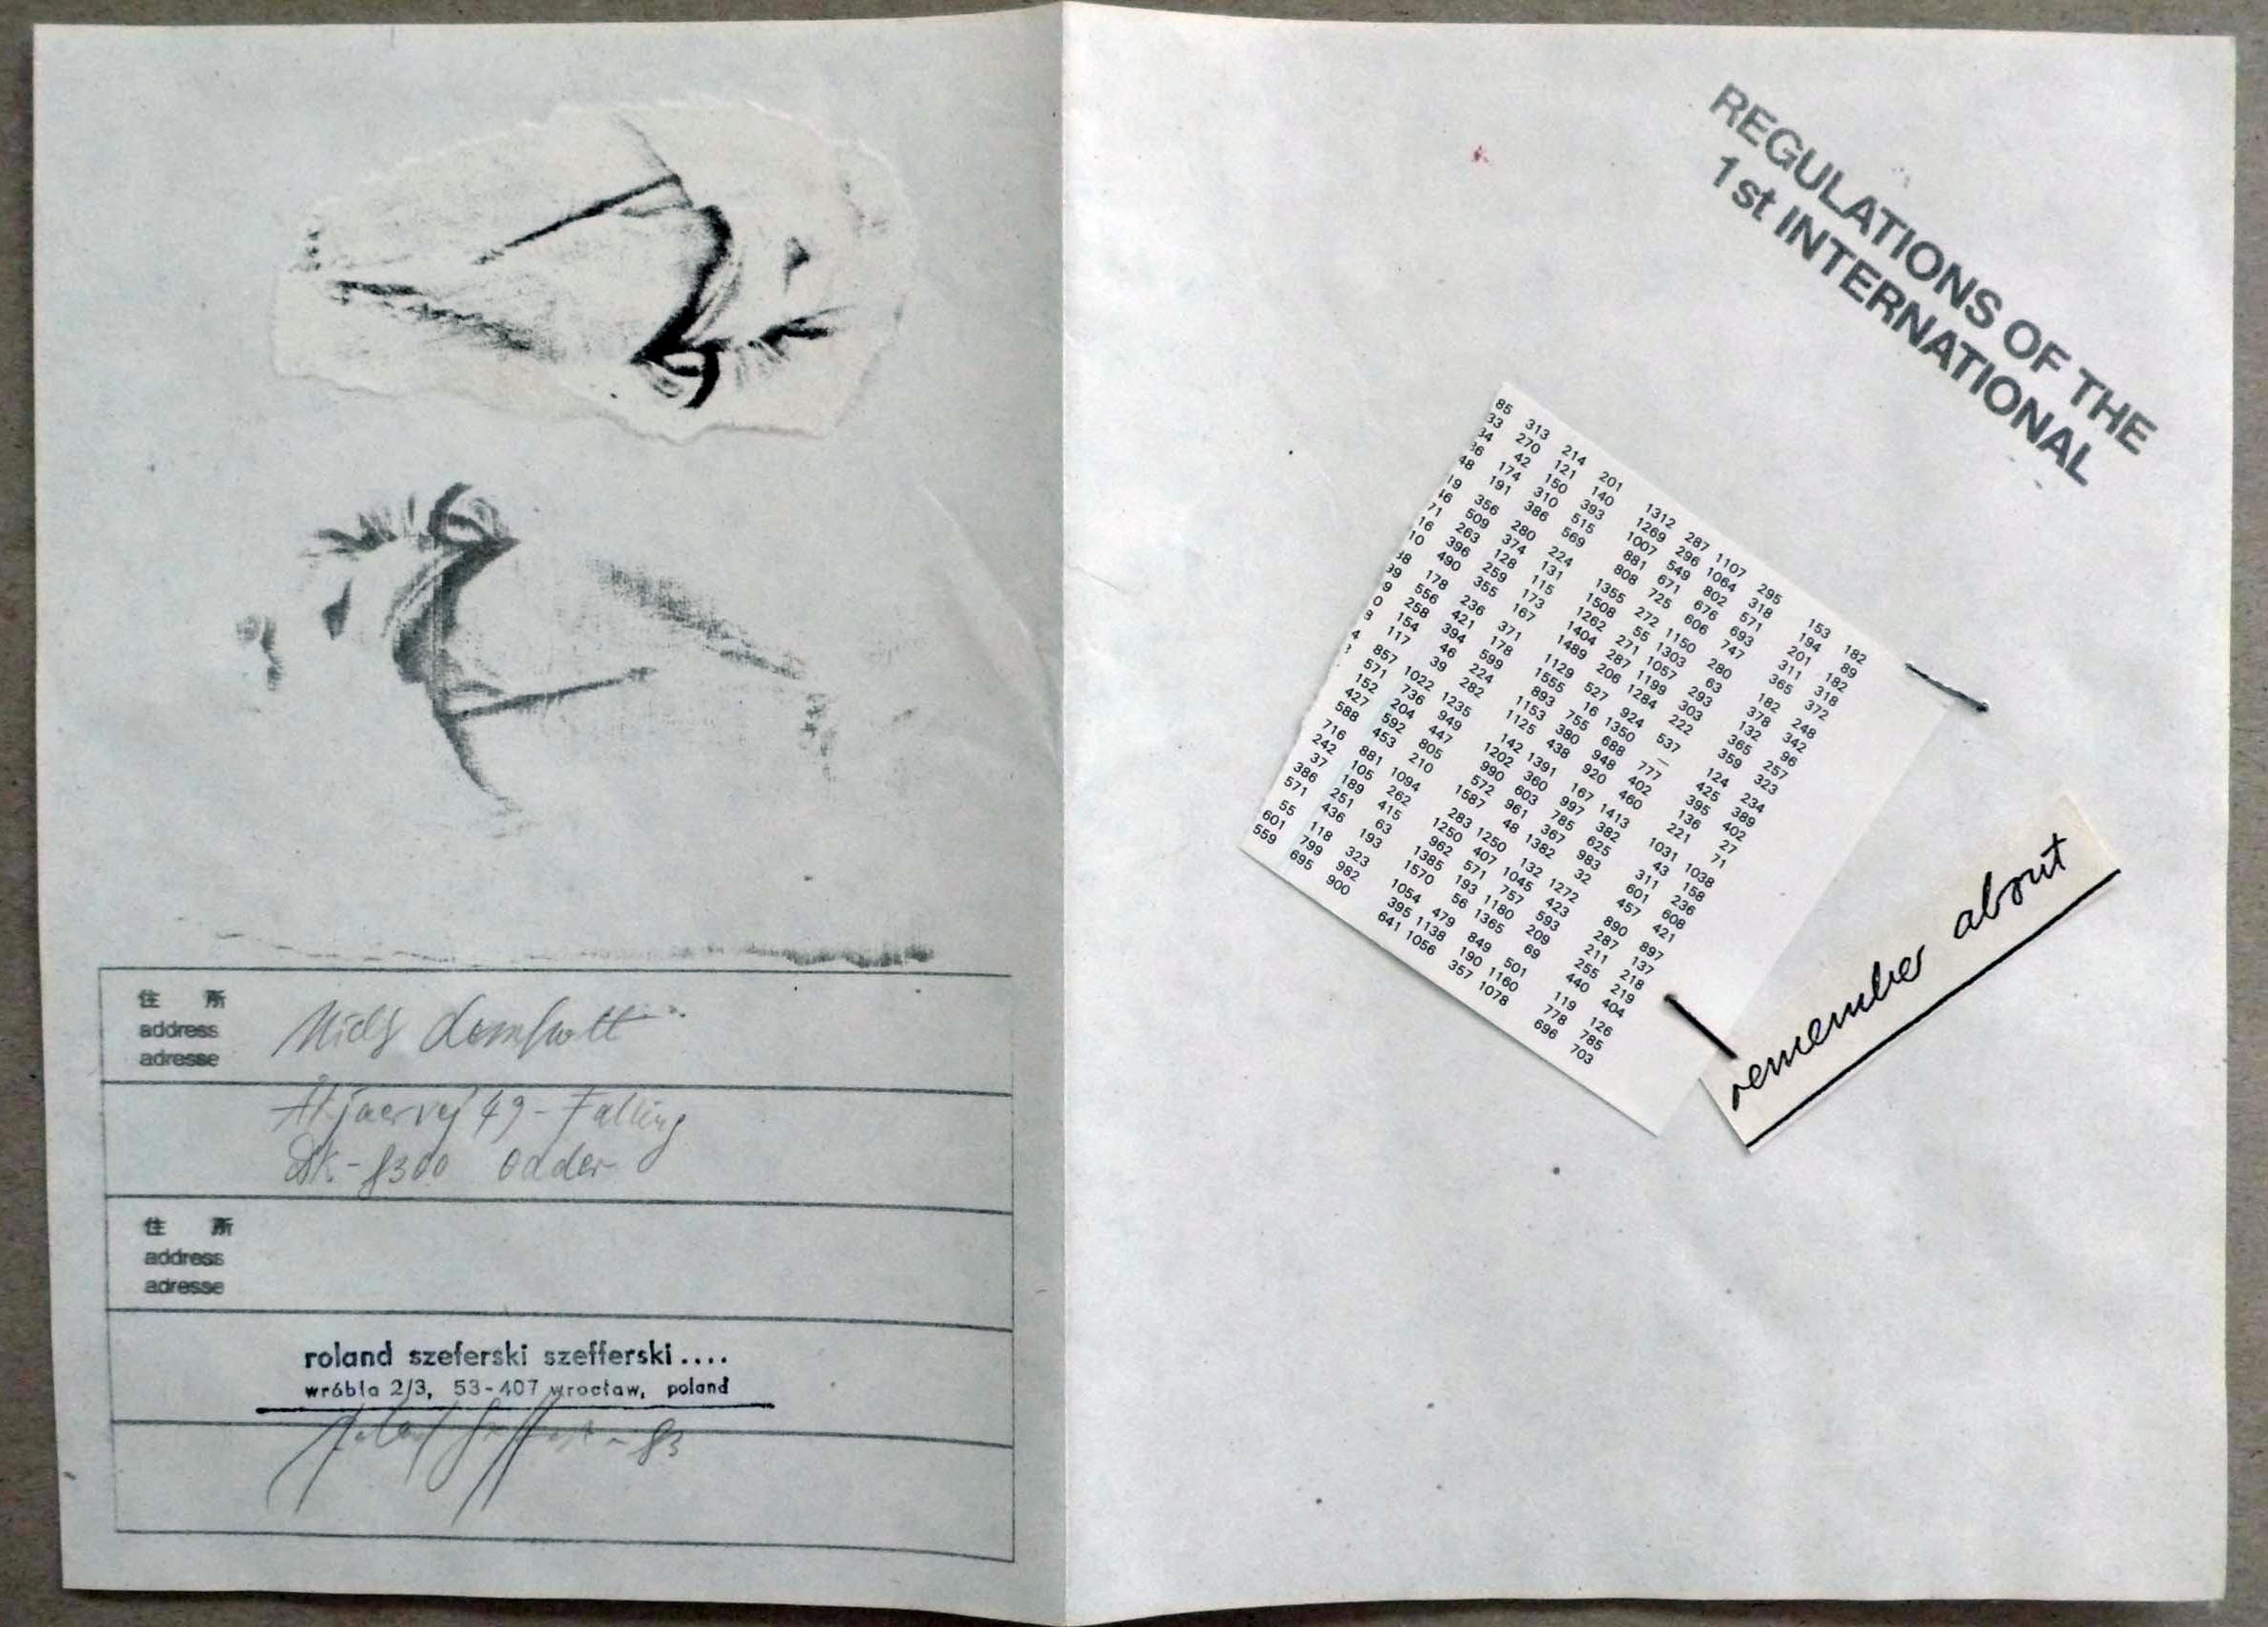 住 所
address
adresse
Niels Lomholt
DK-8300 Odder
住 所
address
adresse
roland szeferski szefferski....
wróbla 2/3, 53-407 wrocław, poland
83
REGULATIONS OF THE
1st INTERNATIONAL
85 313 214 201 1312 287 1107 295 153 182
33 270 121 140 1269 296 1064 318 194 89
34 42 150 393 1007 549 802 571 201 182
36 174 310 515 881 671 676 693 311 318
48 191 386 569 808 725 606 747 365 372
19 356 280 224 1355 272 1150 280 182 248
46 509 374 131 1508 55 1303 63 378 342
71 263 128 115 1262 271 1057 293 132 96
16 396 259 173 1404 287 1199 303 365 257
10 490 355 167 1489 206 1284 222 359 323
38 178 236 371 1129 527 924 537 124 234
99 556 421 178 1555 16 1350 — 425 389
9 258 394 599 893 755 688 777 395 402
0 154 46 224 1153 380 948 402 136 27
117 39 282 1125 438 920 460 221 71
857 1022 1235 142 1391 167 1413 1031 1038
571 736 949 1202 360 997 382 43 158
152 204 447 990 603 785 625 311 236
427 592 805 572 961 367 983 601 608
588 453 210 1587 48 1382 32 457 421
716 881 1094 283 1250 132 1272 890 897
242 105 262 1250 407 1045 423 287 137
37 189 415 962 571 757 593 211 218
386 251 63 1385 193 1180 209 255 219
571 436 193 1570 56 1365 69 440 404
55 118 323 1054 479 849 501 119 126
601 799 982 395 1138 190 1160 778 785
559 695 900 641 1056 357 1078 696 703
remember about